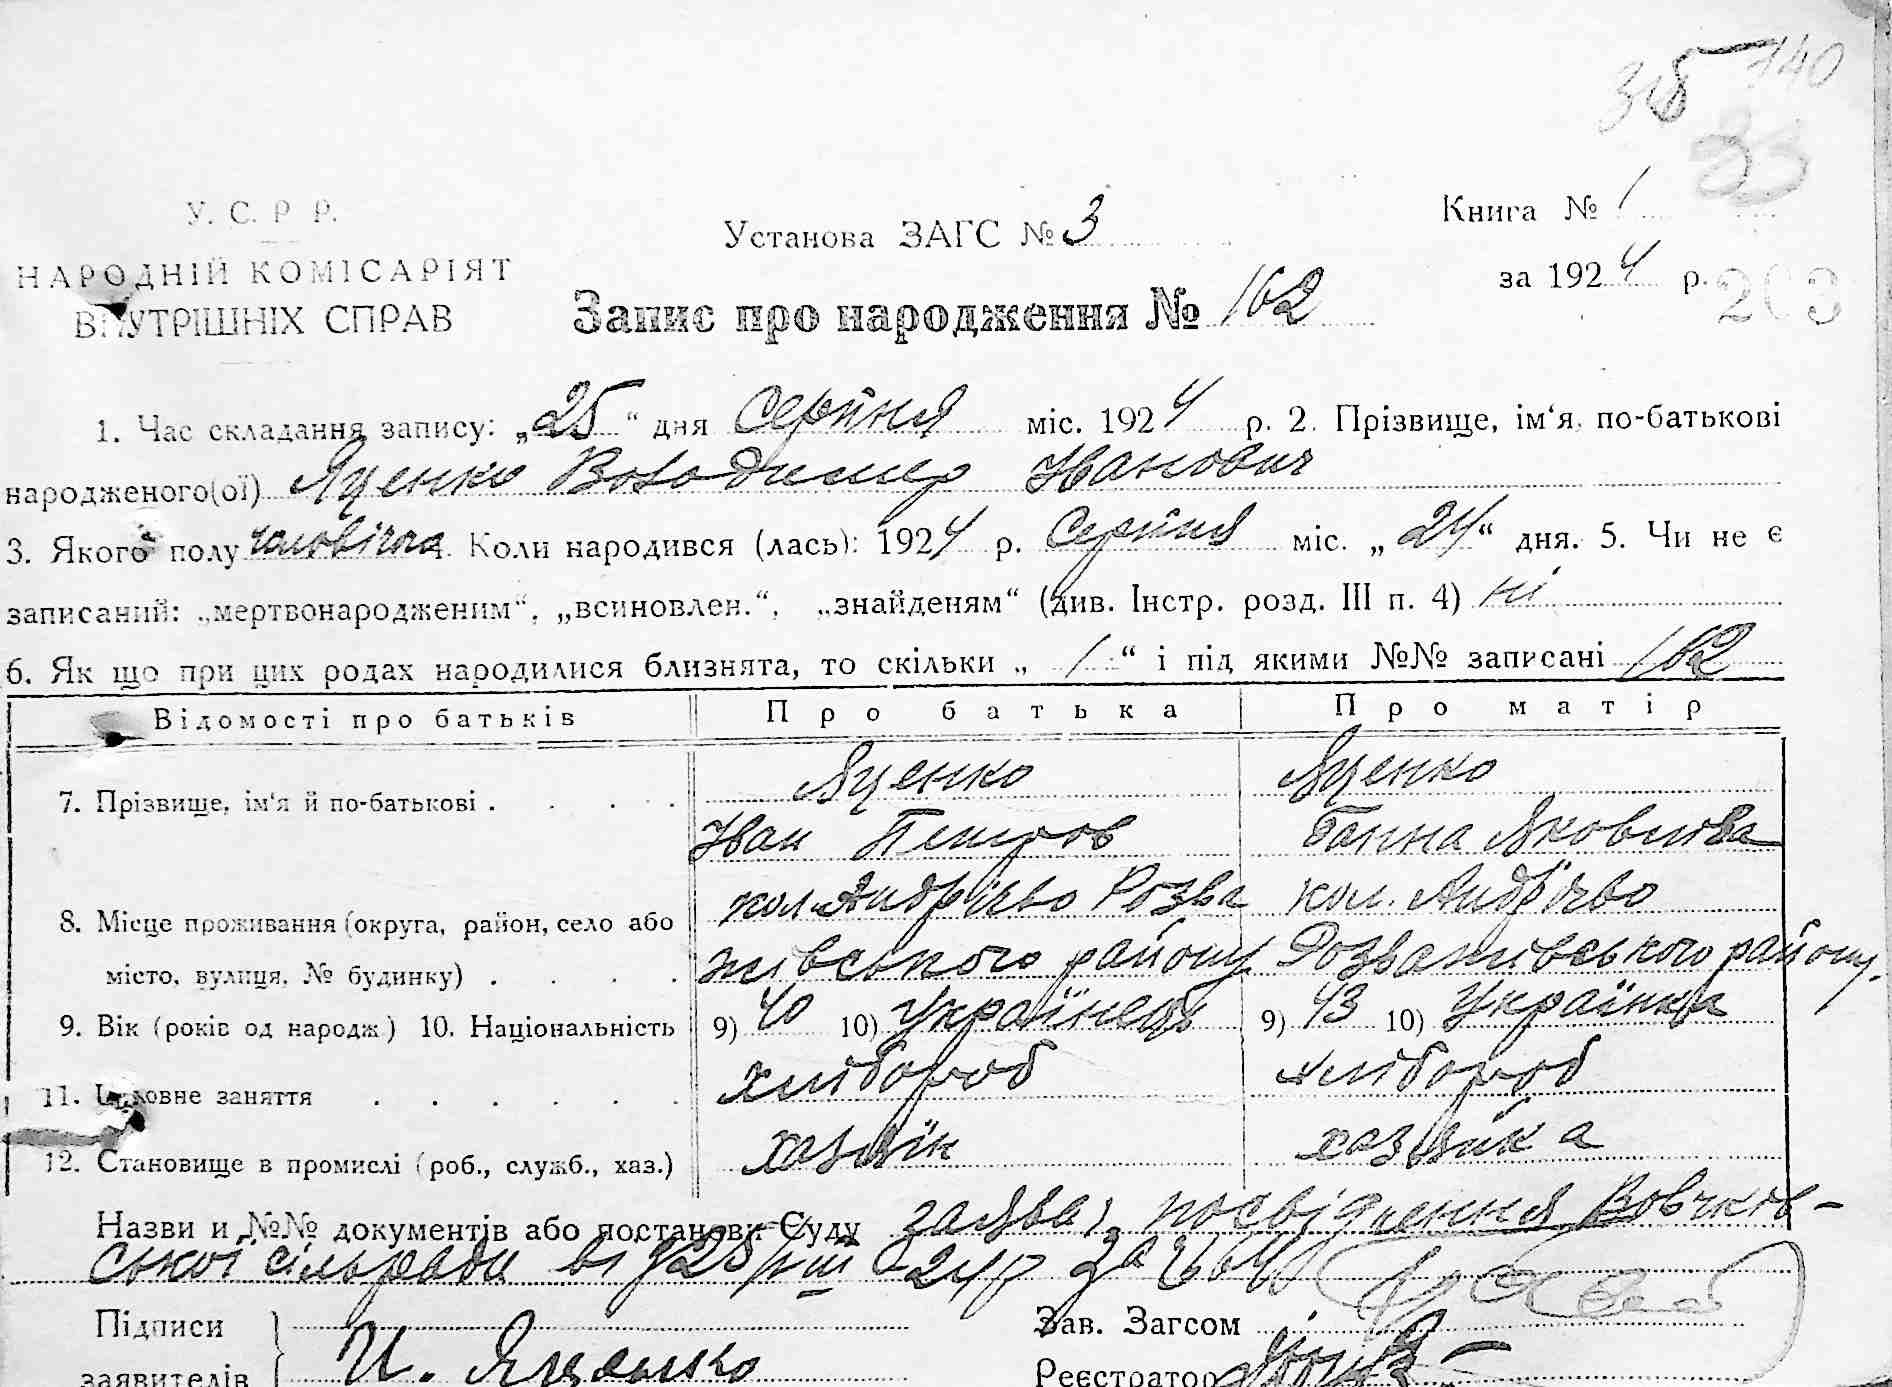 315 140
33
У. С. Р Р.
НАРОДНІЙ КОМІСАРІЯТ
ВНУТРІШНІХ СПРАВ
Установа ЗАГС № 3
Книга № 1
за 1924 р.
203
Запис про народження № 162
1. Час складання запису: „25“ дня Серпня міс. 1924 р. 2. Прізвище, ім‘я, по-батькові
народженого(ої) Яценко Володимер Іванович
3. Якого полу чоловічого 4. Коли народився (лась): 1924 р. Серпня міс. „24“ дня. 5. Чи не є
записаний: „мертвонародженим“, „всиновлен.“, „знайденям“ (див. Інстр. розд. III п. 4) ні
6. Як що при цих родах народилися близнята, то скільки „ 1 “ і під якими №№ записані 162
Відомості про батьків Про батька Про матір
7. Прізвище, ім‘я й по-батькові . . . . Яценко Яценко
Іван Петров Ганна Яковлєва
кол. Андріїво Розва кол. Андріїво
8. Місце проживання (округа, район, село або
місто, вулиця, № будинку) . . . . жівського району Розважівського району.
9. Вік (років од народж) 10. Національність 9) 40 10) Українець 9) 43 10) Українка
11. Церковне заняття . . . . . . хлібороб хлібороб
12. Становище в промислі (роб., служб., хаз.) хазяїн хазяїка
Назви и №№ документів або постанови Суду заява, посвідчення Вовчков-
ської сільради від 25/VIII 24р за
Підписи
заявителів И. Яценко
Зав. Загсом
Реєстратор